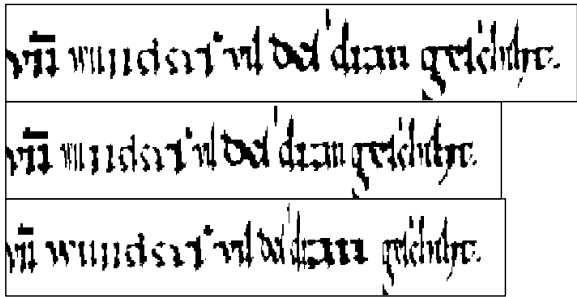 vn̄ wunders vil des dran geschiht.
vn̄ wunders vil des dran geschiht.
vn̄ wunders vil des dran geschiht.